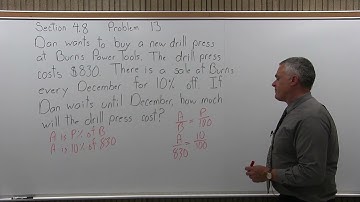 Section 4.8 Problem 13
Dan wants to buy a new drill press
at Burns Power Tools. The drill press
costs $830. There is a sale at Burns
every December for 10% off. If
Dan waits until December, how much
will the drill press cost?
A/B = P/100
A is P% of B
A is 10% of 830
A/830 = 10/100